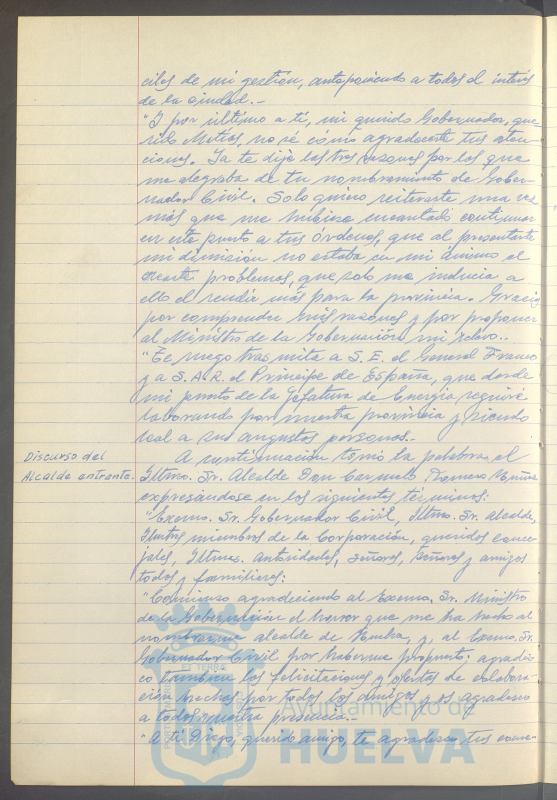 ciles de mi gestión, anteponiendo a todos el interés
de la ciudad.-
"Y por último a ti, mi querido Gobernador, que-
rido Matías, no sé cómo agradecerte tus aten-
ciones. Ya te dije las tres razones por los que
me alegraba de tu nombramiento de Gober-
nador Civil. Solo quiero reiterarte una vez
más que me hubiese encantado continuar
en este puesto a tus órdenes, que al presentarte
mi dimisión no estaba en mi ánimo el
crearte problemas, que solo me inducía a
ello el rendir más para la provincia. Gracias
por comprender mis razones y por proponer
al Ministro de la Gobernación mi relevo.-
"Te ruego trasmita a S.E. el General Franco
y a S.A.R. el Príncipe de España, que desde
mi puesto de la Jefatura de Energía seguiré
laborando por nuestra provincia y siendo
leal a sus augustas personas.-
Discurso del
Alcalde entrante.
A continuación tomó la palabra el
Iltmo. Sr. Alcalde Don Carmelo Romero Núñez
expresándose en los siguientes términos:
"Excmo. Sr. Gobernador Civil, Iltmo. Sr. Alcalde,
Ilustres miembros de la Corporación, queridos conce-
jales, Iltmas. autoridades, señoras, señores y amigos
todos y familiares:
"Comienzo agradeciendo al Excmo. Sr. Ministro
de la Gobernación el honor que me ha hecho al
nombrarme alcalde de Huelva, y al Excmo. Sr.
Gobernador Civil por haberme propuesto; agradez-
co también las felicitaciones y ofertas de colabora-
ción hechas por todos los amigos y os agradezco
a todos vuestra presencia.-
"A ti Diego, querido amigo, te agradezco tus
Ayuntamiento de
HUELVA